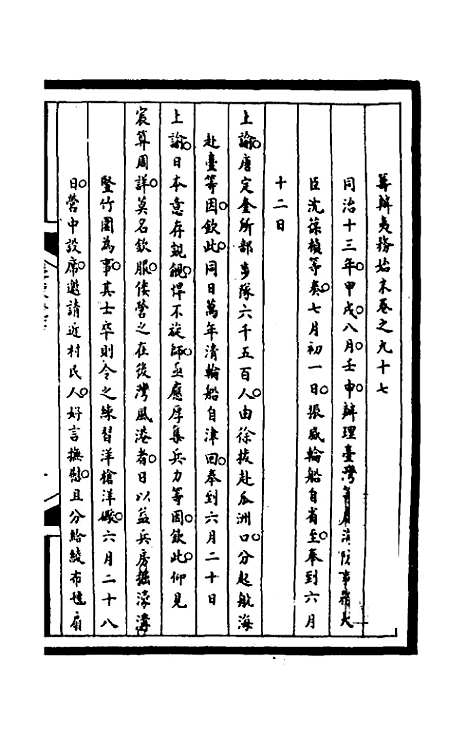 籌辦夷務始末卷之九十七
同治十三年甲戌八月壬申辦理臺灣等處海防事務大
臣沈葆楨等奏七月初一日張威輪船自省至奉到六月
十二日
上諭唐定奎所部步隊六千五百人由徐拔赴瓜洲口分起航海
赴臺等因欽此同日萬年清輪船自津回奉到六月二十日
上諭日本意存覬覦悍不旋師亟應厚集兵力等因欽此仰見
宸算周詳莫名欽服倭營之在後灣風港者日以益兵房掘濠溝
豎竹圍為事其士卒則令之練習洋槍洋礮六月二十八
日營中設席邀請近村民人好言撫慰且分給綾布氊扇